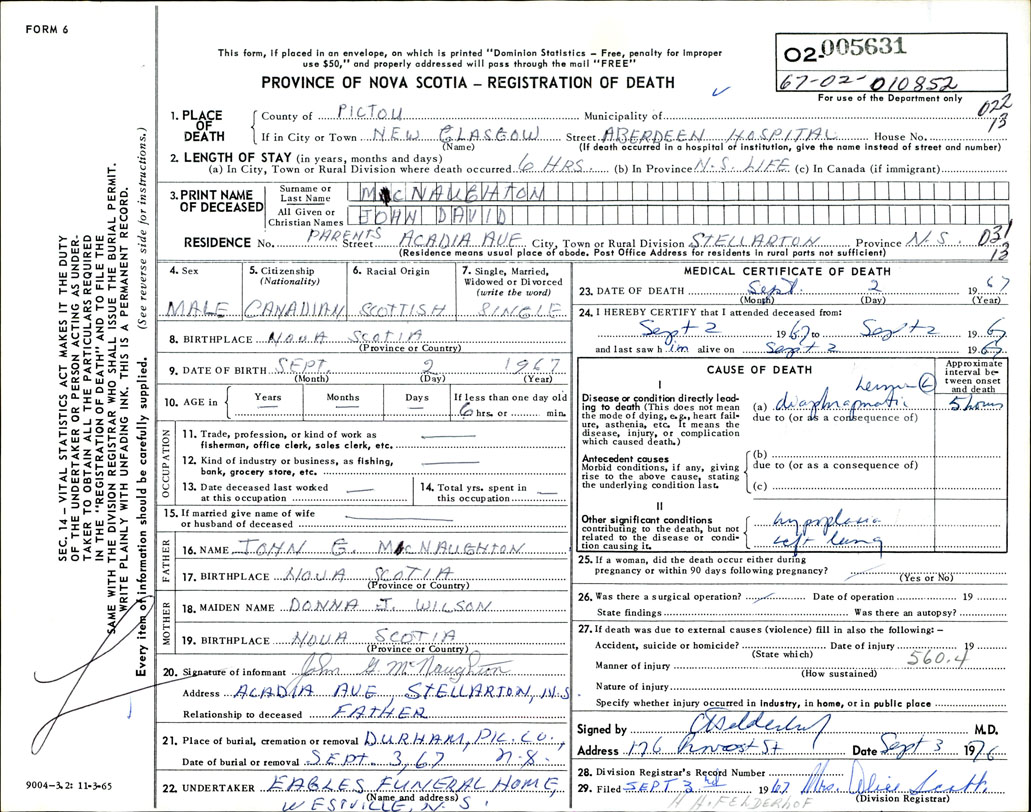 FORM 6
This form, if placed in an envelope, on which is printed "Dominion Statistics – Free, penalty for improper
use $50," and properly addressed will pass through the mail "FREE"
PROVINCE OF NOVA SCOTIA – REGISTRATION OF DEATH
02-005631
67-02-010852
For use of the Department only
022
13
1. PLACE OF DEATH
County of PICTOU Municipality of
If in City or Town NEW GLASGOW Street ABERDEEN HOSPITAL House No.
(Name) (If death occurred in a hospital or institution, give the name instead of street and number)
2. LENGTH OF STAY (in years, months and days)
(a) In City, Town or Rural Division where death occurred 6 HRS. (b) In Province N.S. LIFE (c) In Canada (if immigrant)
3. PRINT NAME OF DECEASED
Surname or Last Name MacNAUGHTON
All Given or Christian Names JOHN DAVID
RESIDENCE No. PARENTS Street ACADIA AVE City, Town or Rural Division STELLARTON Province N.S.
031
13
(Residence means usual place of abode. Post Office Address for residents in rural parts not sufficient)
4. Sex MALE
5. Citizenship (Nationality) CANADIAN
6. Racial Origin SCOTTISH
7. Single, Married, Widowed or Divorced (write the word) SINGLE
8. BIRTHPLACE NOVA SCOTIA
(Province or Country)
9. DATE OF BIRTH SEPT. 2 1967
(Month) (Day) (Year)
10. AGE in Years — Months — Days — If less than one day old 6 hrs. or min.
OCCUPATION
11. Trade, profession, or kind of work as fisherman, office clerk, sales clerk, etc. —
12. Kind of industry or business, as fishing, bank, grocery store, etc. —
13. Date deceased last worked at this occupation —
14. Total yrs. spent in this occupation —
15. If married give name of wife or husband of deceased —
FATHER
16. NAME JOHN G. MacNAUGHTON
17. BIRTHPLACE NOVA SCOTIA
(Province or Country)
MOTHER
18. MAIDEN NAME DONNA J. WILSON
19. BIRTHPLACE NOVA SCOTIA
(Province or Country)
20. Signature of informant John G McNaughton
Address ACADIA AVE, STELLARTON, N.S
Relationship to deceased FATHER
21. Place of burial, cremation or removal DURHAM, PIC. CO.,
Date of burial or removal SEPT. 3, 67 N.S.
22. UNDERTAKER EAGLES FUNERAL HOME,
(Name and address)
WESTVILLE, N.S.
MEDICAL CERTIFICATE OF DEATH
23. DATE OF DEATH Sept. 2 1967
(Month) (Day) (Year)
24. I HEREBY CERTIFY that I attended deceased from:
Sept 2 1967 to Sept 2 1967
and last saw him alive on Sept 2 1967
CAUSE OF DEATH
Approximate interval between onset and death
I
Disease or condition directly leading to death (This does not mean the mode of dying, e.g., heart failure, asthenia, etc. It means the disease, injury, or complication which caused death.)
(a) diaphragmatic hernia (L) 5 hours
due to (or as a consequence of)
Antecedent causes
Morbid conditions, if any, giving rise to the above cause, stating the underlying condition last.
(b)
due to (or as a consequence of)
(c)
II
Other significant conditions contributing to the death, but not related to the disease or condition causing it.
hypoplasia
left lung
25. If a woman, did the death occur either during pregnancy or within 90 days following pregnancy?
(Yes or No)
26. Was there a surgical operation? Date of operation 19
State findings Was there an autopsy?
27. If death was due to external causes (violence) fill in also the following: –
Accident, suicide or homicide? Date of injury 19
(State which)
560.4
Manner of injury
(How sustained)
Nature of injury
Specify whether injury occurred in industry, in home, or in public place
Signed by M.D.
Address 176 Provost St Date Sept 3 1976
28. Division Registrar's Record Number
29. Filed SEPT 3rd 1967 Mrs. Alice Scott
(Division Registrar)
H A. FELDERHOF
SEC. 14 – VITAL STATISTICS ACT MAKES IT THE DUTY
OF THE UNDERTAKER OR PERSON ACTING AS UNDER-
TAKER TO OBTAIN ALL THE PARTICULARS REQUIRED
IN THE "REGISTRATION OF DEATH" AND TO FILE THE
SAME WITH THE DIVISION REGISTRAR WHO SHALL ISSUE THE BURIAL PERMIT.
WRITE PLAINLY WITH UNFADING INK. THIS IS A PERMANENT RECORD.
Every item of information should be carefully supplied. (See reverse side for instructions.)
9004-3.2: 11-3-65